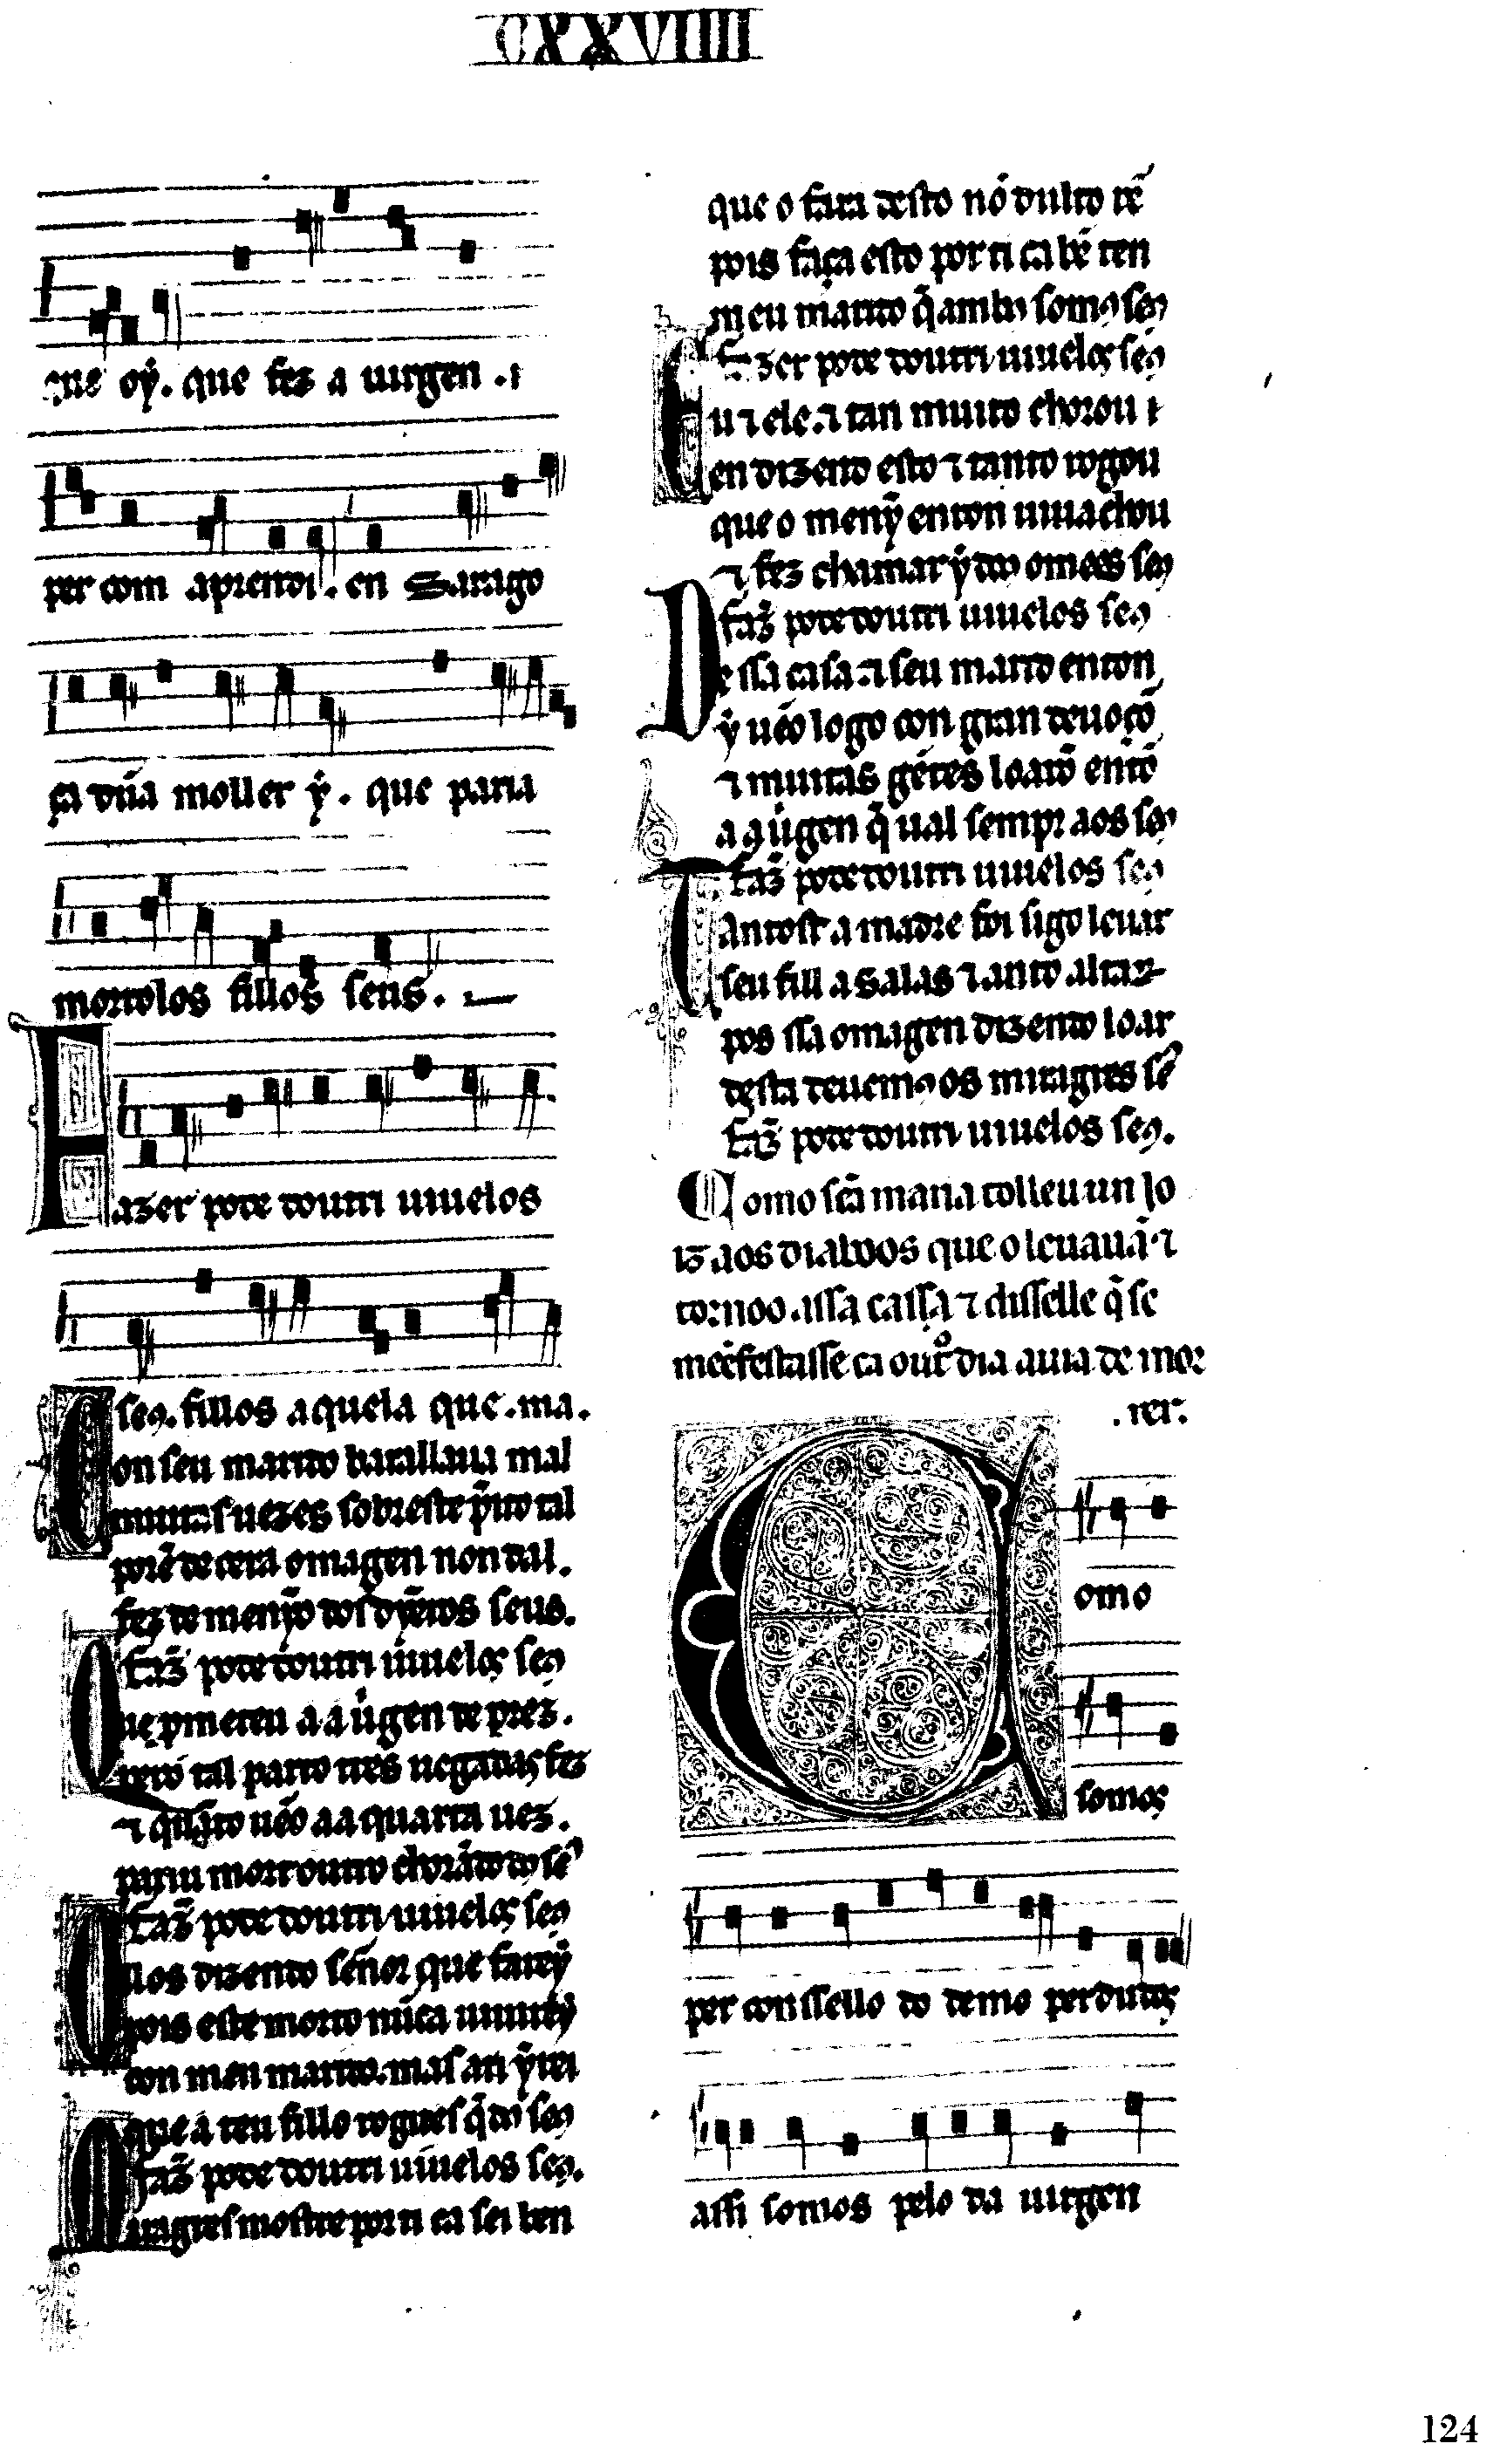 CXXVIIII
que oẏ. que fez a uirgen .i
per com aprendi. en Sarago
ça dũa moller ẏ. que paria
mortolos fillos seus.
Fazer pode doutri uiuelos
seꝯ. fillos aquela que .ma.
Con seu marido barallaua mal
muitas uezes sobreste p̃ito tal
porẽ de cera omagen non dal.
fez de menỹo dos dỹeiros seus.
Faz̃ pode doutri uiuelos seꝯ
Que pmeteu a a uirgen de prez.
pero tal parto tres uegadas fez
⁊ quãdo uẽo a a quarta uez.
pariu mort outro chorãdo do sẽ
Faz̃ pode doutri uiuelos seꝯ
Ollos dizendo señor que farey
pois este morto nũca uiuirey
con meu marido. mas ati ỹrei
que a teu fillo rogues q̃ dos seꝯ
Faz̃ pode doutri uiuelos seꝯ.
Miragres mostre por ti ca sei ben
que o fara desto nõ duldo rẽ
pois faça esto por ti ca bẽ ten
meu marido q̃ ambos somꝯ seꝯ
Fazer pode doutri uiuelos seꝯ
Eu ⁊ ele. ⁊ tan muito chorou i
en dizendo esto ⁊ tanto rogou
que o menỹ enton uiu achou
⁊ fez chamar ẏ dos omees seꝯ
Faz̃ pode doutri uiuelos seꝯ
De ssa casa. ⁊ seu marido enton
ẏ uẽo logo con gran deuoçõ
⁊ muitas gẽtes loarõ entõ
a uirgen q̃ ual sempr aos seꝯ
Faz̃ pode doutri uiuelos seꝯ
Tantost a madre foi sigo leuar
seu fill a Salas ⁊ anto altar
pos ssa omagen dizendo loar
desta deuemꝯ os miragres sẽ
Faz̃ pode doutri uiuelos seꝯ.
Como sc̃a maria tolleu un jo
iz aos diabõos que o leuauã ⁊
tornoo .assa cassa ⁊ disselle q̃ se
mẽefestasse ca outro dia auia de mor
.rer.
Como
somos
per conssello do demo perdudos
assi somos pelo da uirgen
124